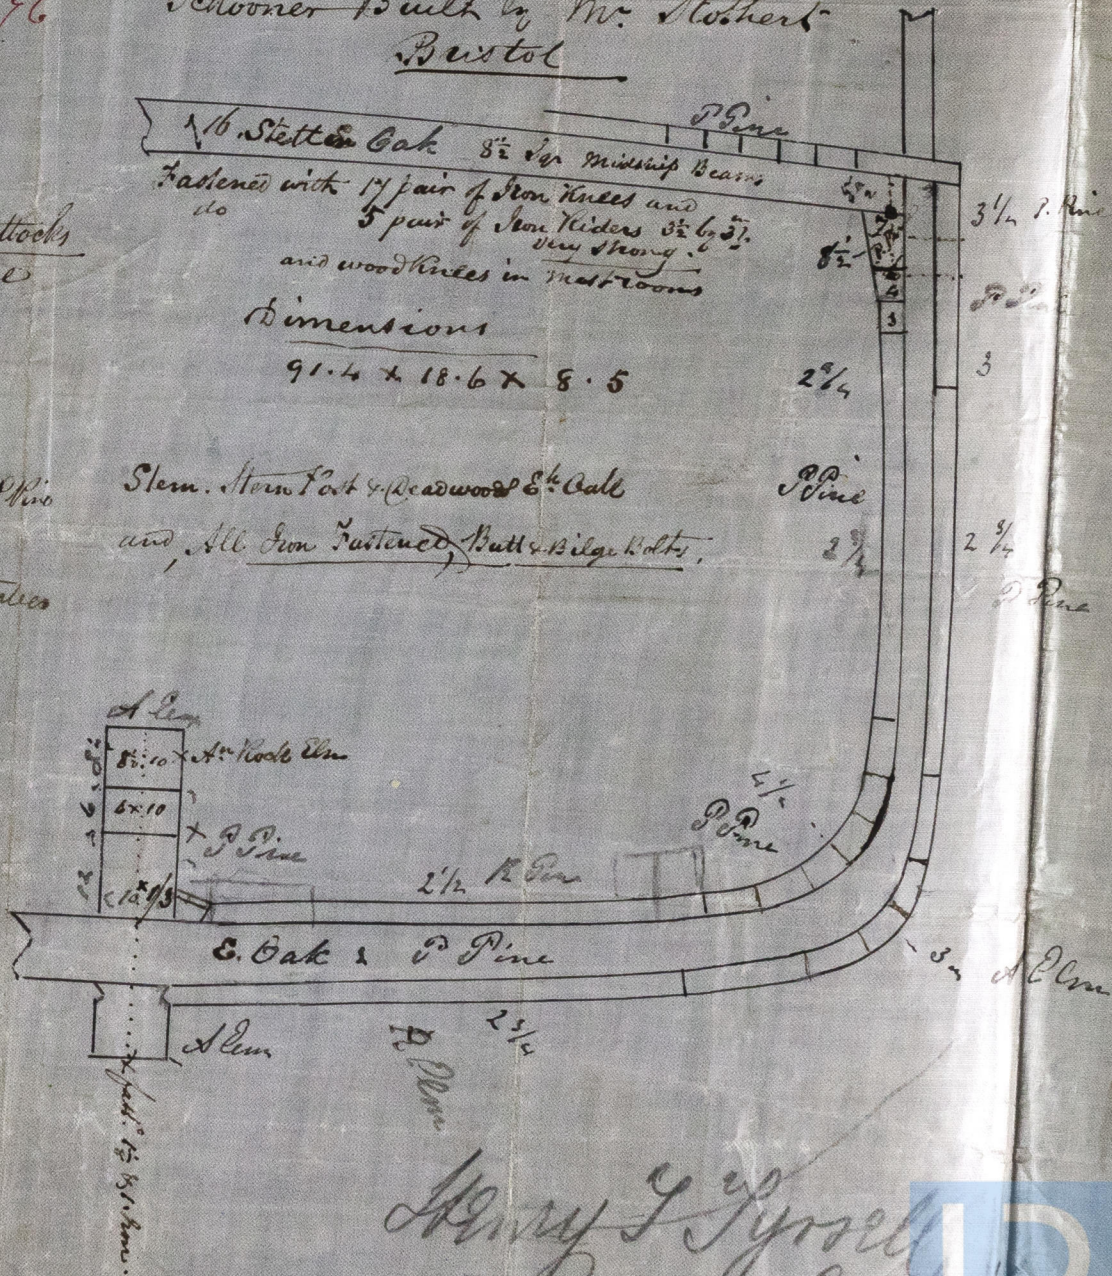 76
Schooner Built by Mr. Stothert
Bristol
P Pine
16. Stettin Oak 8½ Sqr Midship Beams
Fastened with 17 pair of Iron Knees and
do 5 pair of Iron Riders 3½ by
very strong.
and wood Knees in Mastrooms
3¼ P. Pine
8½
7
4
3
P Pine
3
Dimensions
91.4 x 18.6 x 8.5
2¾
Stem. Stern Post & Deadwoods Eh. Oak
P Pine
and, All Iron Fastened, Butt & Bilge Bolts.
2¾
P Pine
A Elm
8½.10 x An Rock Elm
6x10
x P Pine
12
4½
P Pine
2½
E. Oak & P Pine
3
A Elm
A Elm
2¾
Elm
Henry T Tyrrell